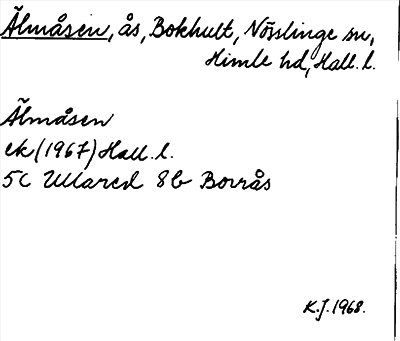 Älmåsen, ås, Bokhult, Nösslinge sn,
Himle hd, Hall. l.
Älmåsen
ek (1967) Hall. l.
5C Ullared 8b Borrås
K.J. 1968.